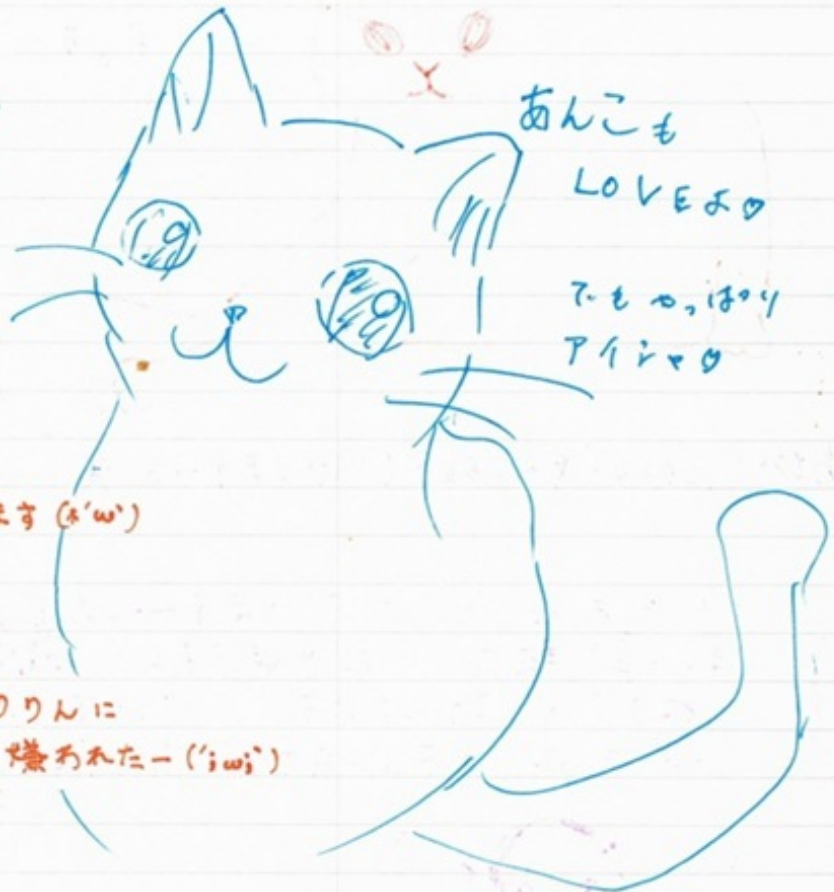 あんこも
LOVEよ♡
でもやっぱり
アイシャ♡
ます(*'ω')
りんに
嫌われたー(';ω;`)